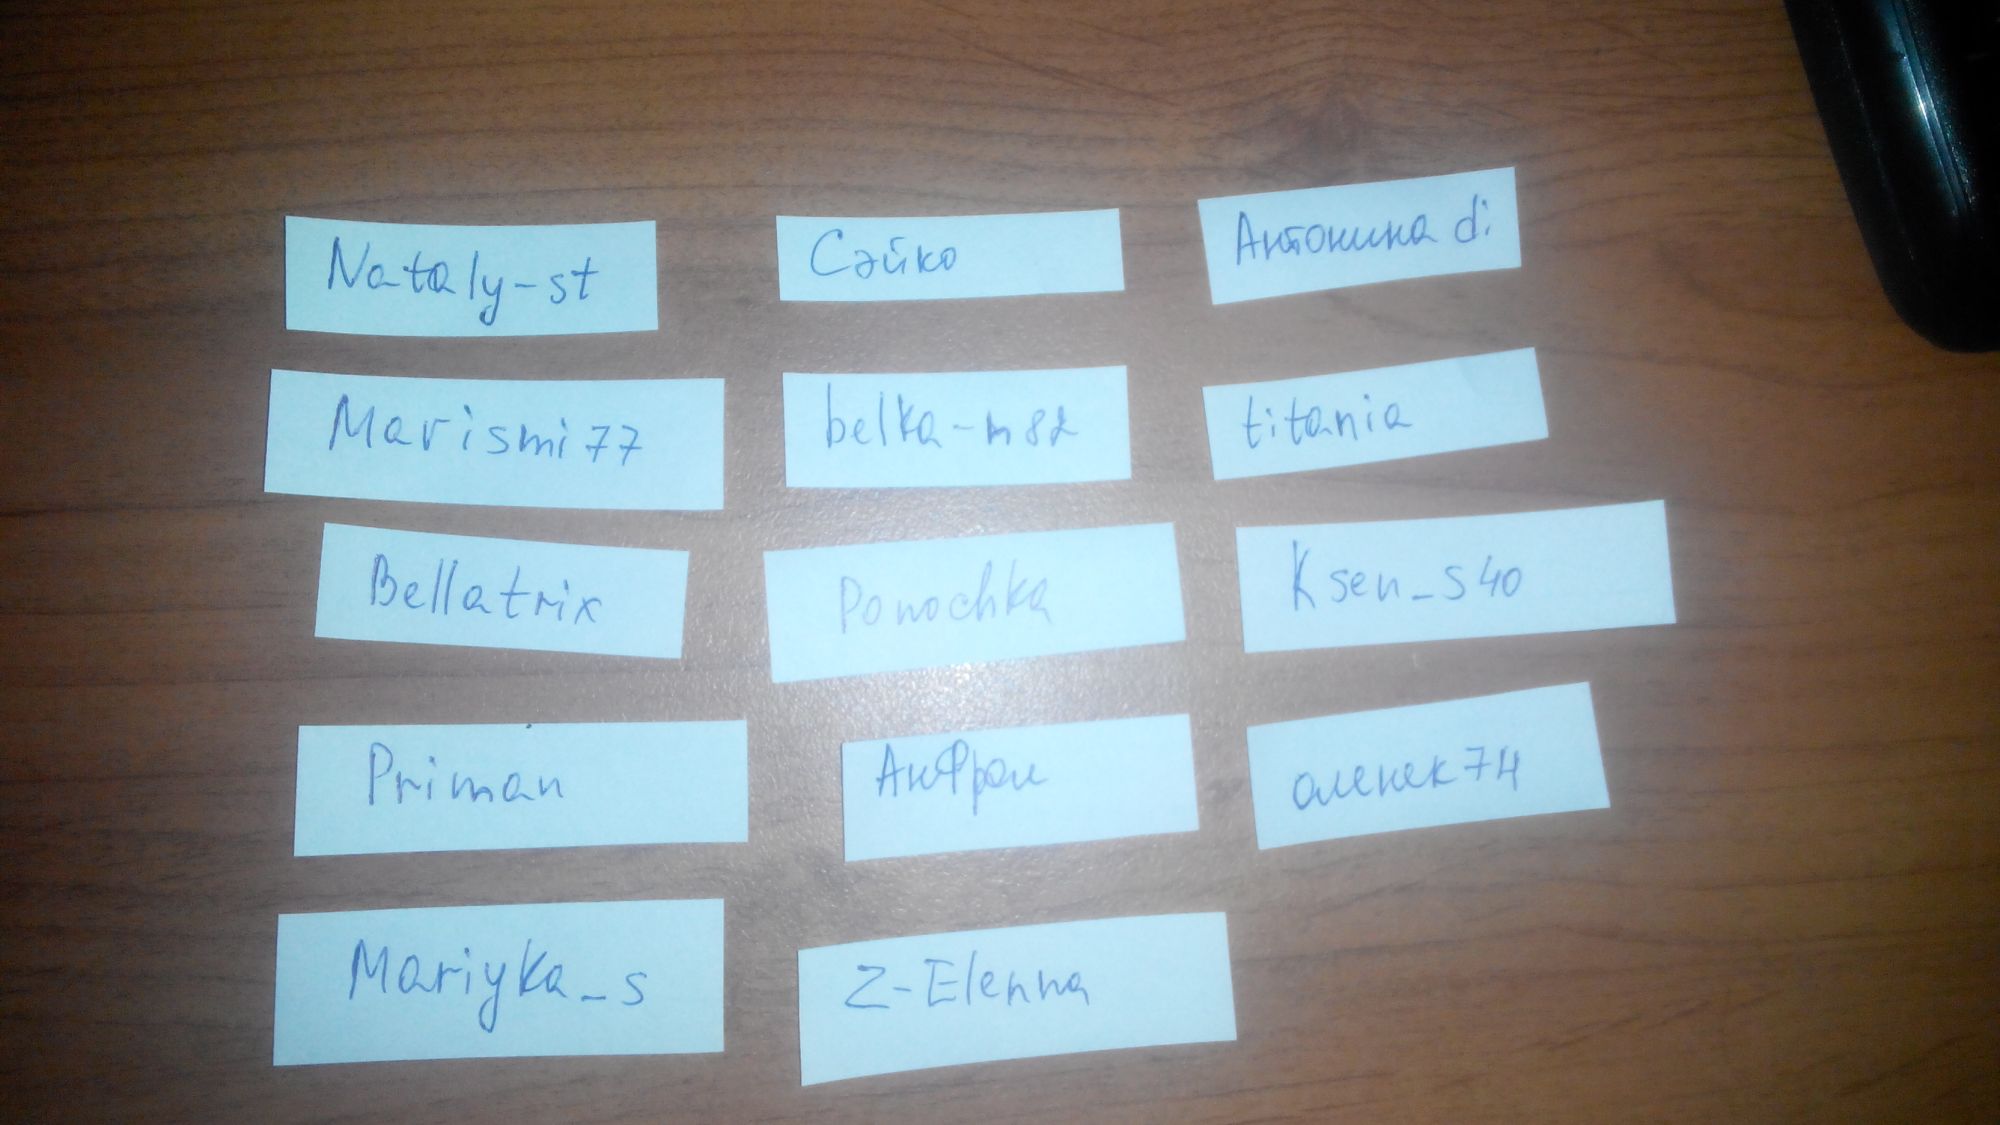 Nataly-st
Сэйко
Антонина di
Marismi77
belka-m82
titania
Bellatrix
Ponochka
Ksen_s40
Priman
АнФрол
оленек74
Mariyka_s
Z-Elenna